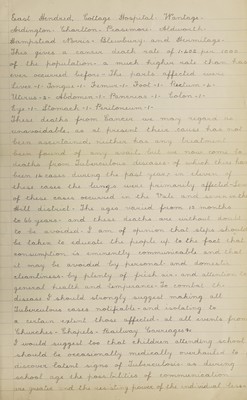 East Hendred, Cottage Hospital, Wantage,
Ardington, Charlton, Peasemore, Aldworth,
Hampstead Norris, and Hermitage.
This gives a cancer death rate of per 1000
of the population, a much higher rate than has
ever occurred before. The parts affected were
Liver Tongue 1. Femur 1. Foot 1. Rectum
Uterus 2. Abdomen 1. Pancreas Colon
Eye 1. Stomach Peritoneum 1.
These deaths from Cancer we may regard as
unavoidable, as at present their cause has not
been ascertained, neither has any treatment
been found of any avail, but we now come to
deaths from Tuberculous diseases of which there have
been 16 cases during the past year, in eleven of
these cases the lungs were primarily affected.
of these cases occurred in the Vale and seven in the
Hill district. The ages varied from 15 months
to 66 years, and these deaths are without doubt
to be avoided. I am of opinion that steps should
be taken to educate the people up to the fact that
consumption is eminently communicable and that
it may be avoided by personal and domestic
cleanliness, by plenty of fresh air, and attention to
general health and temperance. To combat the
disease I should strongly suggest making all
Tuberculous cases notifiable, and isolating to
a certain extent those affected at all events from
Churches, Chapels, Railway Carriages &c.
I would suggest too that children attending school
should be occasionally medically overhauled to
discover latent signs of Tuberculosis as during
school age the possibilities of communication
are greater and the resisting power of the individual lower